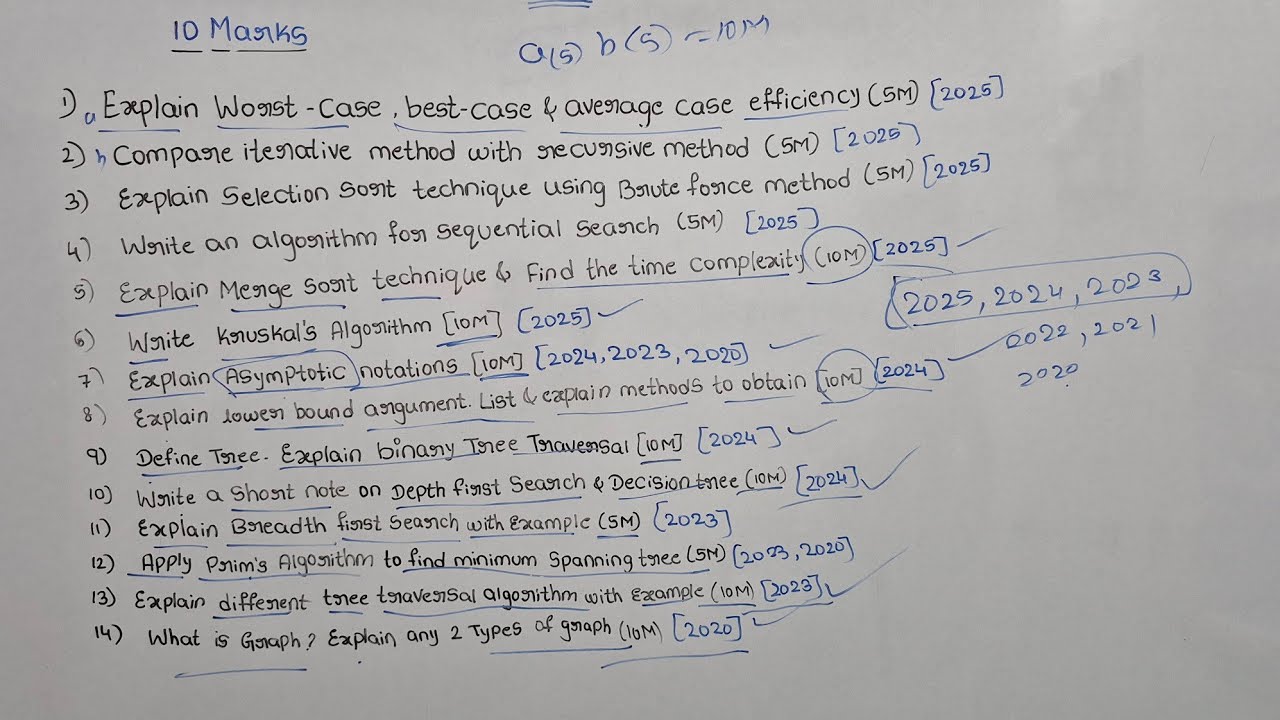 10 Marks
a(5) b(5) = 10M
1) a Explain Worst-Case, best-case & average case efficiency (5M) [2025]
2) b Compare iterative method with recursive method (5M) [2025]
3) Explain Selection Sort technique using Brute force method (5M) [2025]
4) Write an algorithm for sequential Search (5M) [2025]
5) Explain Merge Sort technique & Find the time complexity (10M) [2025]
6) Write Kruskal's Algorithm [10M] [2025]
2025, 2024, 2023,
7) Explain Asymptotic notations [10M] [2024, 2023, 2020]
2022, 2021
8) Explain lower bound argument. List & explain methods to obtain [10M] [2024]
2020
9) Define Tree. Explain binary Tree Traversal [10M] [2024]
10) Write a Short note on Depth first Search & Decision tree (10M) [2024]
11) Explain Breadth first Search with Example (5M) [2023]
12) Apply Prim's Algorithm to find minimum Spanning tree (5M) [2023, 2020]
13) Explain different tree traversal algorithm with Example (10M) [2023]
14) What is Graph? Explain any 2 Types of graph (10M) [2020]